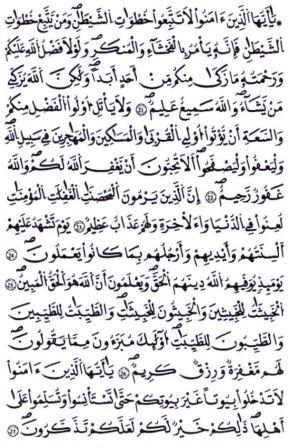 يَٰأَيُّهَا اَ۬لذِينَ ءَامَنُوا لَا تَتَّبِعُوا خُطْوَاتِ اِ۬لشَّيْطَٰنِ وَمَنْ يَّتَّبِعْ خُطْوَاتِ
اِ۬لشَّيْطَٰنِ فَإِنَّهُ يَأْمُرُ بِالْفَحْشَاءِ وَالْمُنكَرِ وَلَوْلَا فَضْلُ اُ۬للَّهِ عَلَيْكُمْ
وَرَحْمَتُهُ مَا زَكَىٰ مِنكُم مِّنْ أَحَدٍ أَبَداً وَلَٰكِنَّ اَ۬للَّهَ يُزَكِّي
مَنْ يَّشَاءُ وَاللَّهُ سَمِيعٌ عَلِيمٌ 21 وَلَا يَأْتَلِ أُوْلُوا اُ۬لْفَضْلِ مِنكُمْ
وَالسَّعَةِ أَنْ يُّؤْتُوا أُوْلِي اِ۬لْقُرْبَىٰ وَالْمَسَٰكِينَ وَالْمُهَٰجِرِينَ فِي سَبِيلِ اِ۬للَّهِ
وَلْيَعْفُوا وَلْيَصْفَحُوا أَلَا تُحِبُّونَ أَنْ يَّغْفِرَ اَ۬للَّهُ لَكُمْ وَاللَّهُ
غَفُورٌ رَّحِيمٌ 22 إِنَّ اَ۬لذِينَ يَرْمُونَ اَ۬لْمُحْصَنَٰتِ اِ۬لْغَٰفِلَٰتِ اِ۬لْمُؤْمِنَٰتِ
لُعِنُوا فِي اِ۬لدُّنْيَا وَالْأَخِرَةِ وَلَهُمْ عَذَابٌ عَظِيمٌ 23 يَوْمَ تَشْهَدُ عَلَيْهِمْ
أَلْسِنَتُهُمْ وَأَيْدِيهِمْ وَأَرْجُلُهُم بِمَا كَانُوا يَعْمَلُونَ 24
يَوْمَئِذٍ يُوَفِّيهِمُ اُ۬للَّهُ دِينَهُمُ اُ۬لْحَقَّ وَيَعْلَمُونَ أَنَّ اَ۬للَّهَ هُوَ اَ۬لْحَقُّ اُ۬لْمُبِينُ 25
اَ۬لْخَبِيثَٰتُ لِلْخَبِيثِينَ وَالْخَبِيثُونَ لِلْخَبِيثَٰتِ وَالطَّيِّبَٰتُ لِلطَّيِّبِينَ
وَالطَّيِّبُونَ لِلطَّيِّبَٰتِ أُوْلَٰئِكَ مُبَرَّءُونَ مِمَّا يَقُولُونَ
لَهُم مَّغْفِرَةٌ وَرِزْقٌ كَرِيمٌ 26 يَٰأَيُّهَا اَ۬لذِينَ ءَامَنُوا
لَا تَدْخُلُوا بِيُوتاً غَيْرَ بِيُوتِكُمْ حَتَّىٰ تَسْتَأْنِسُوا وَتُسَلِّمُوا عَلَىٰ
أَهْلِهَا ذَٰلِكُمْ خَيْرٌ لَّكُمْ لَعَلَّكُمْ تَذَّكَّرُونَ 27